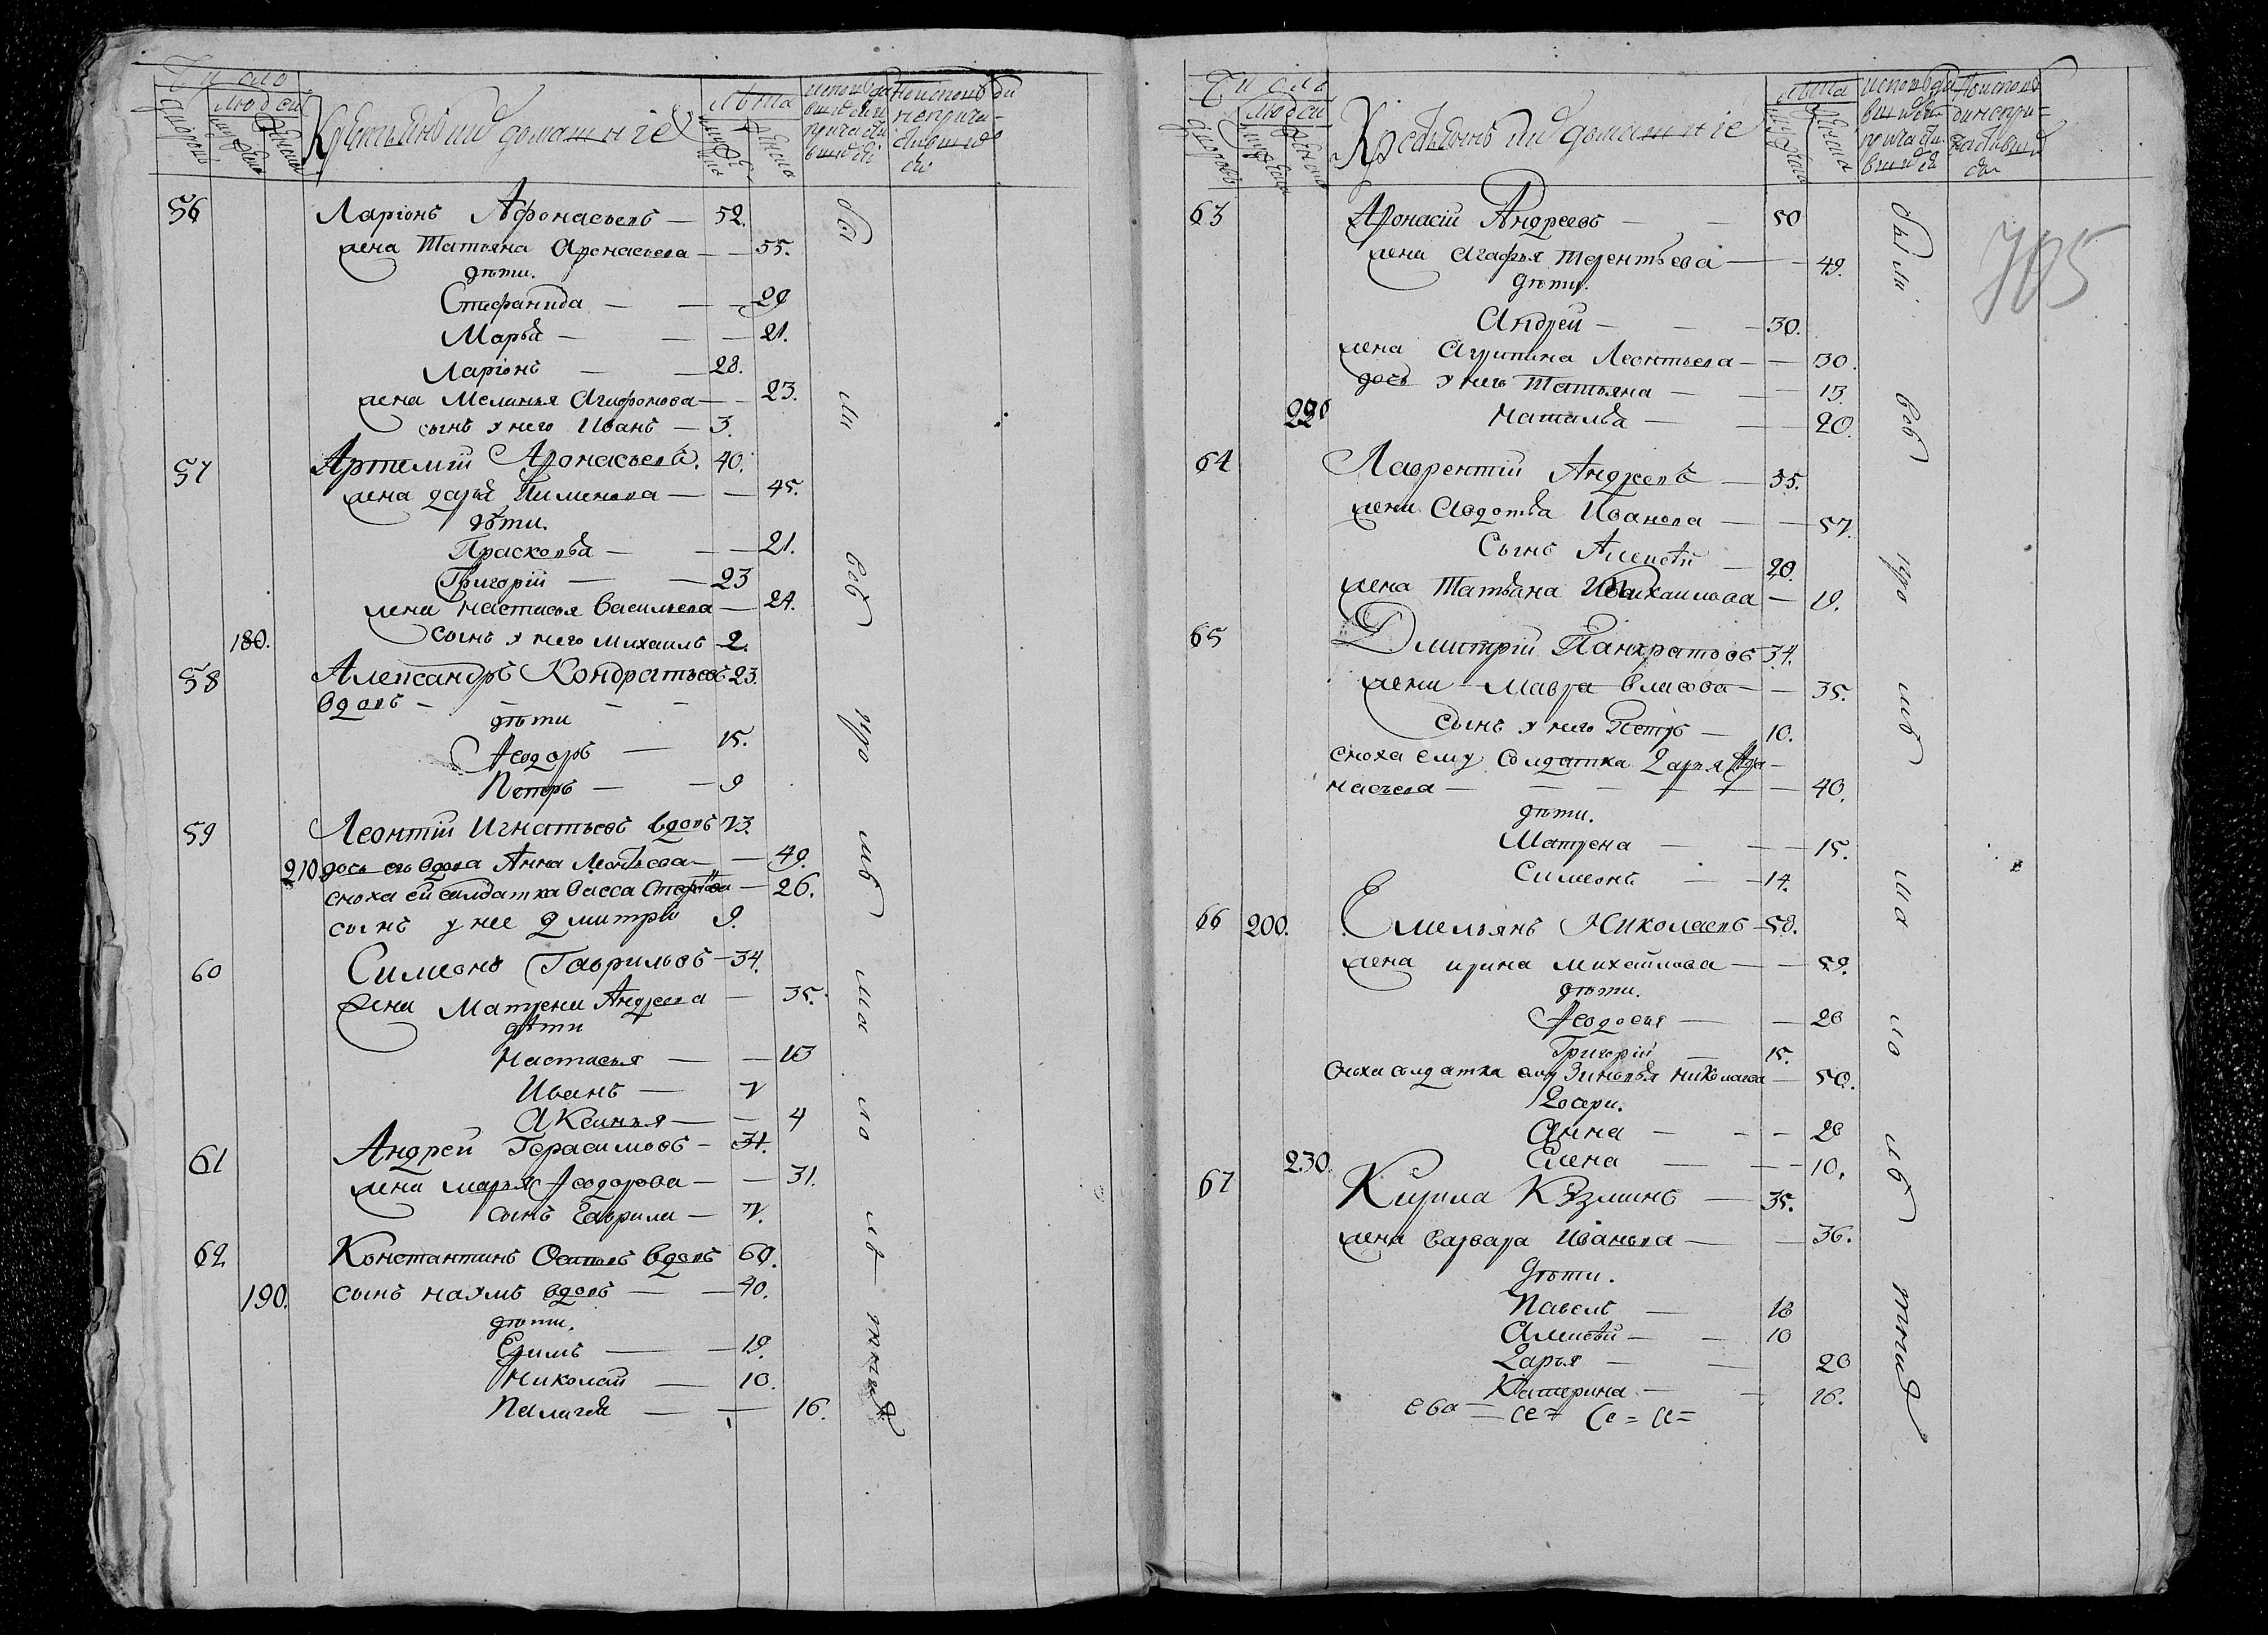 Число
людей
дворовъ
мужеска
женска
Крестьяне и ихъ домашніе
Лѣта
мужеска
женска
исповѣдавшихся и причастившихся
56 Ларіонъ Афонасьевъ — 52.
жена Татьяна Афонасьева — — 55.
дѣти.
Стефанида — — — 29
Марья — — — 21.
Ларіонъ — — 28.
жена Меланья Агафонова — — 23.
сынъ у него Иванъ — 3.
57 Артемій Афонасьевъ. 40.
жена дарья Пименова — — 45.
дѣти.
Прасковья — — — 21.
Григорій — — 23
жена настасья Васильева — 24.
180. сынъ у него Михаилъ 2.
58 Александръ Кондратьевъ 23.
вдовъ — — — —
дѣти
Ѳеодоръ — 15.
Петръ — — 9
59 Леонтій Игнатьевъ вдовъ 73.
210 дочь его вдова Анна Леонтьева — — 49.
сноха ей салдатка Васса — 26.
сынъ у нее Дмитрій 9.
60 Симеонъ Гаврильовъ — 34.
жена Матрена Андреева — 35.
дѣти
Настасья — — 13
Иванъ — 7
Аксинья — — 4
61 Андрей Герасимовъ — 31.
жена марья Ѳеодорова — — 31.
сынъ Гаврила — 7.
62 Константинъ Осиповъ вдовъ 60.
190. сынъ наумъ вдовъ — — 40.
дѣти.
Ефимъ — — 19.
Николай — 10.
Пелагея — — 16.
были всѣ
Число
людей
дворовъ
мужеска
женска
Крестьянъ ихъ домашніе
Лѣта
705
63 Афонасій Андреевъ — — 50
жена Агафья Терентьева — — 49.
дѣти.
Андрей — — 30.
жена Агрипина Леонтьева — — 30.
дочь у него Татьяна — — 13.
220 Наталья — — 20.
64 Лаврентій Андреевъ — 55.
жена Авдотья Иванова — — 57.
Сынъ Алексѣй — 20.
жена Татьяна Михаилова — 19.
65 Дмитрій Панкратовъ 34.
жена Мавра Власова — — 35.
сынъ у него Петръ — 10.
сноха ему солдатка Дарья Афа—
насьева — — — — — 40.
дѣти.
Матрена — — — 15.
Симеонъ — — 14.
66 200. Емельянъ Николаевъ — 58.
жена ирина михайлова — — 59.
дѣти.
Ѳеодосья — — 20
Григорій — 15.
сноха солдатка ему Зиновья николаева — 50.
Дочери.
Анна — — — 20
230. Елена — — — 10.
67 Кирила Кузминъ — 35.
жена Варвара Иванова — — 36.
дѣти.
Павелъ — 18
Алексѣй — — 10
Дарья — — 20
Катерина — — 16.
были всѣ